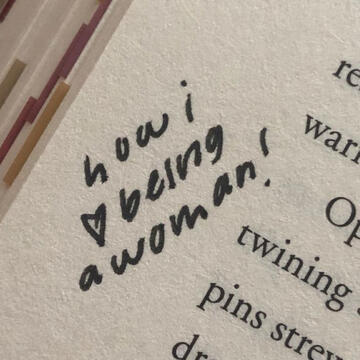 how i
♡ being
a woman!
warm
Op
twining
pins strew